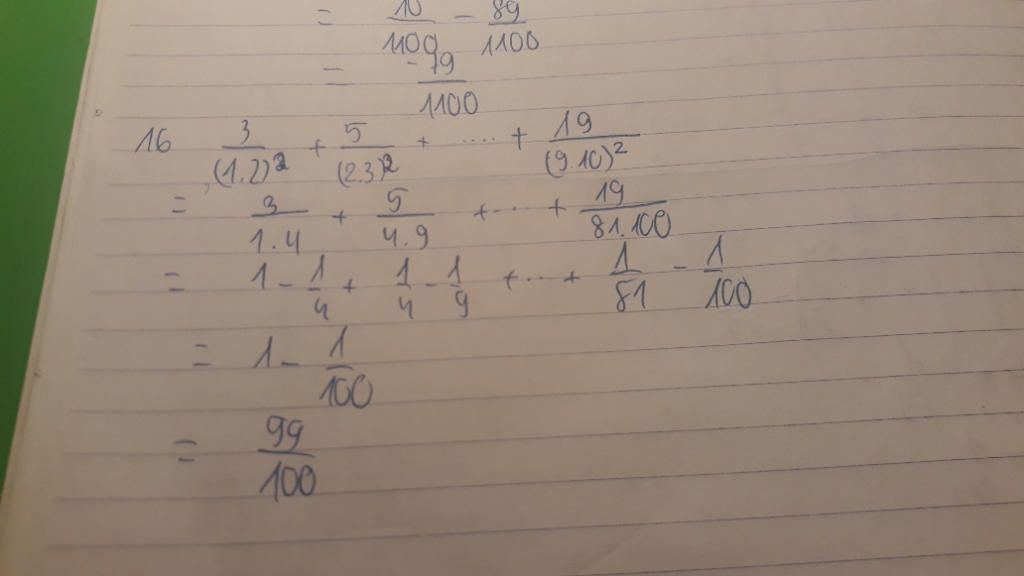 = 10/1100 - 89/1100
= -79/1100
16 3/(1.2)² + 5/(2.3)² + ..... + 19/(9.10)²
= 3/1.4 + 5/4.9 + ... + 19/81.100
= 1 - 1/4 + 1/4 - 1/9 + ... + 1/81 - 1/100
= 1 - 1/100
= 99/100